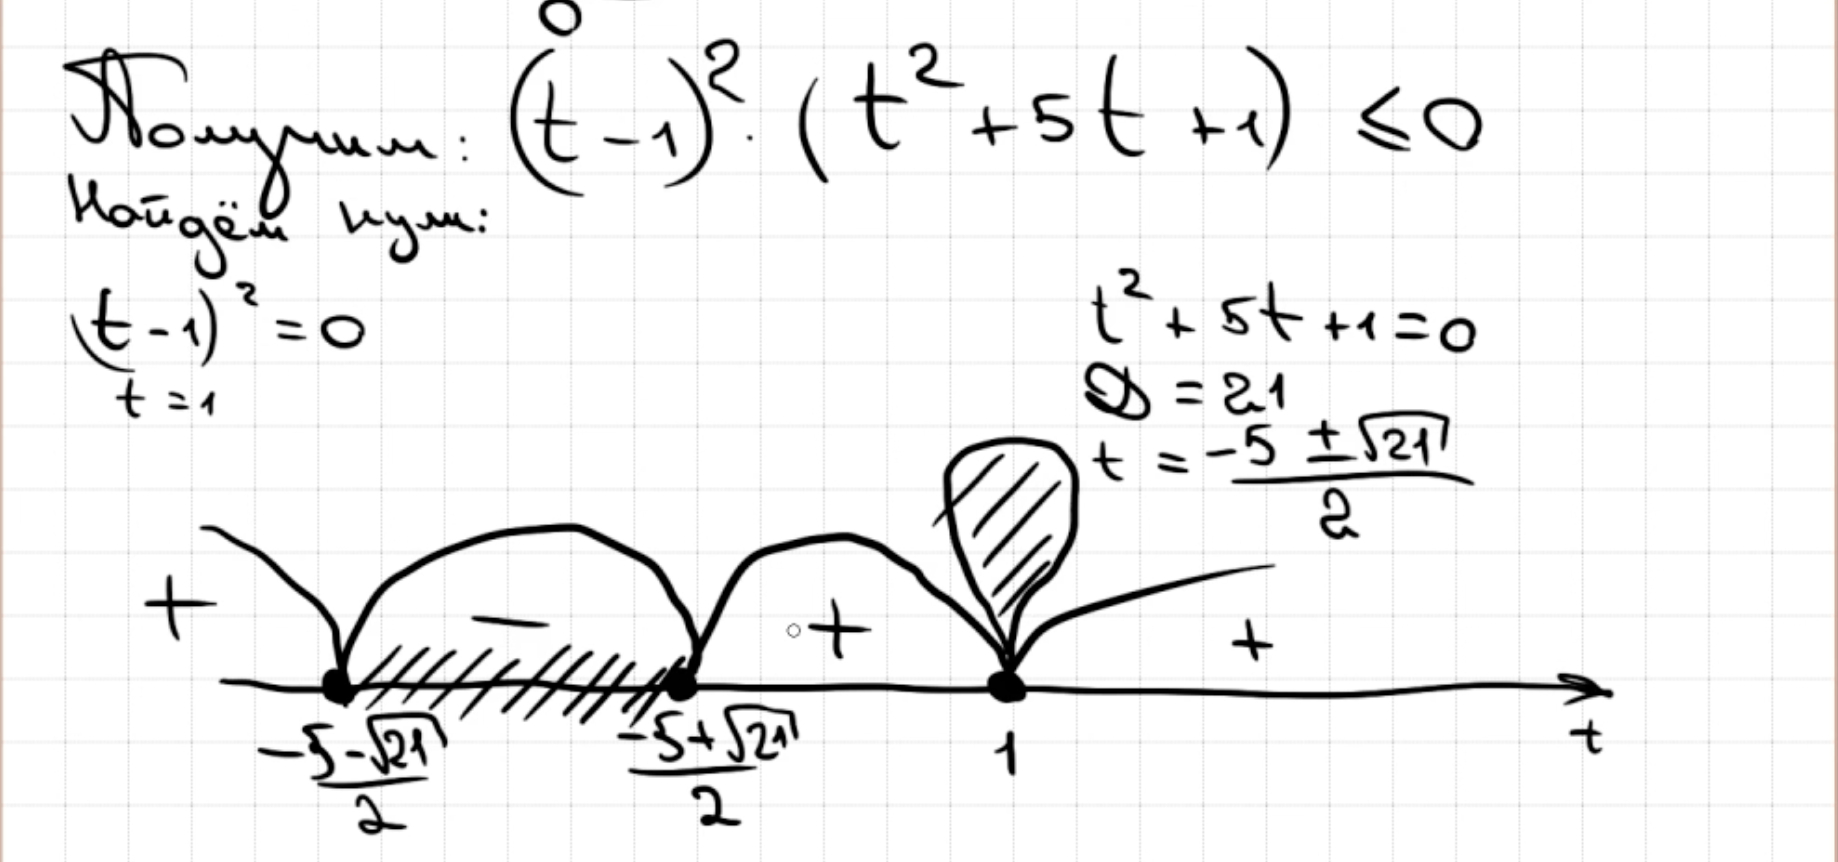 Получим: (t-1)². (t²+5t+1) ≤0
Найдём нули:
(t-1)²=0
t=1
t²+5t+1=0
D=21
t = (-5±√21)/2
+ − + +
(-5-√21)/2 (-5+√21)/2 1 t